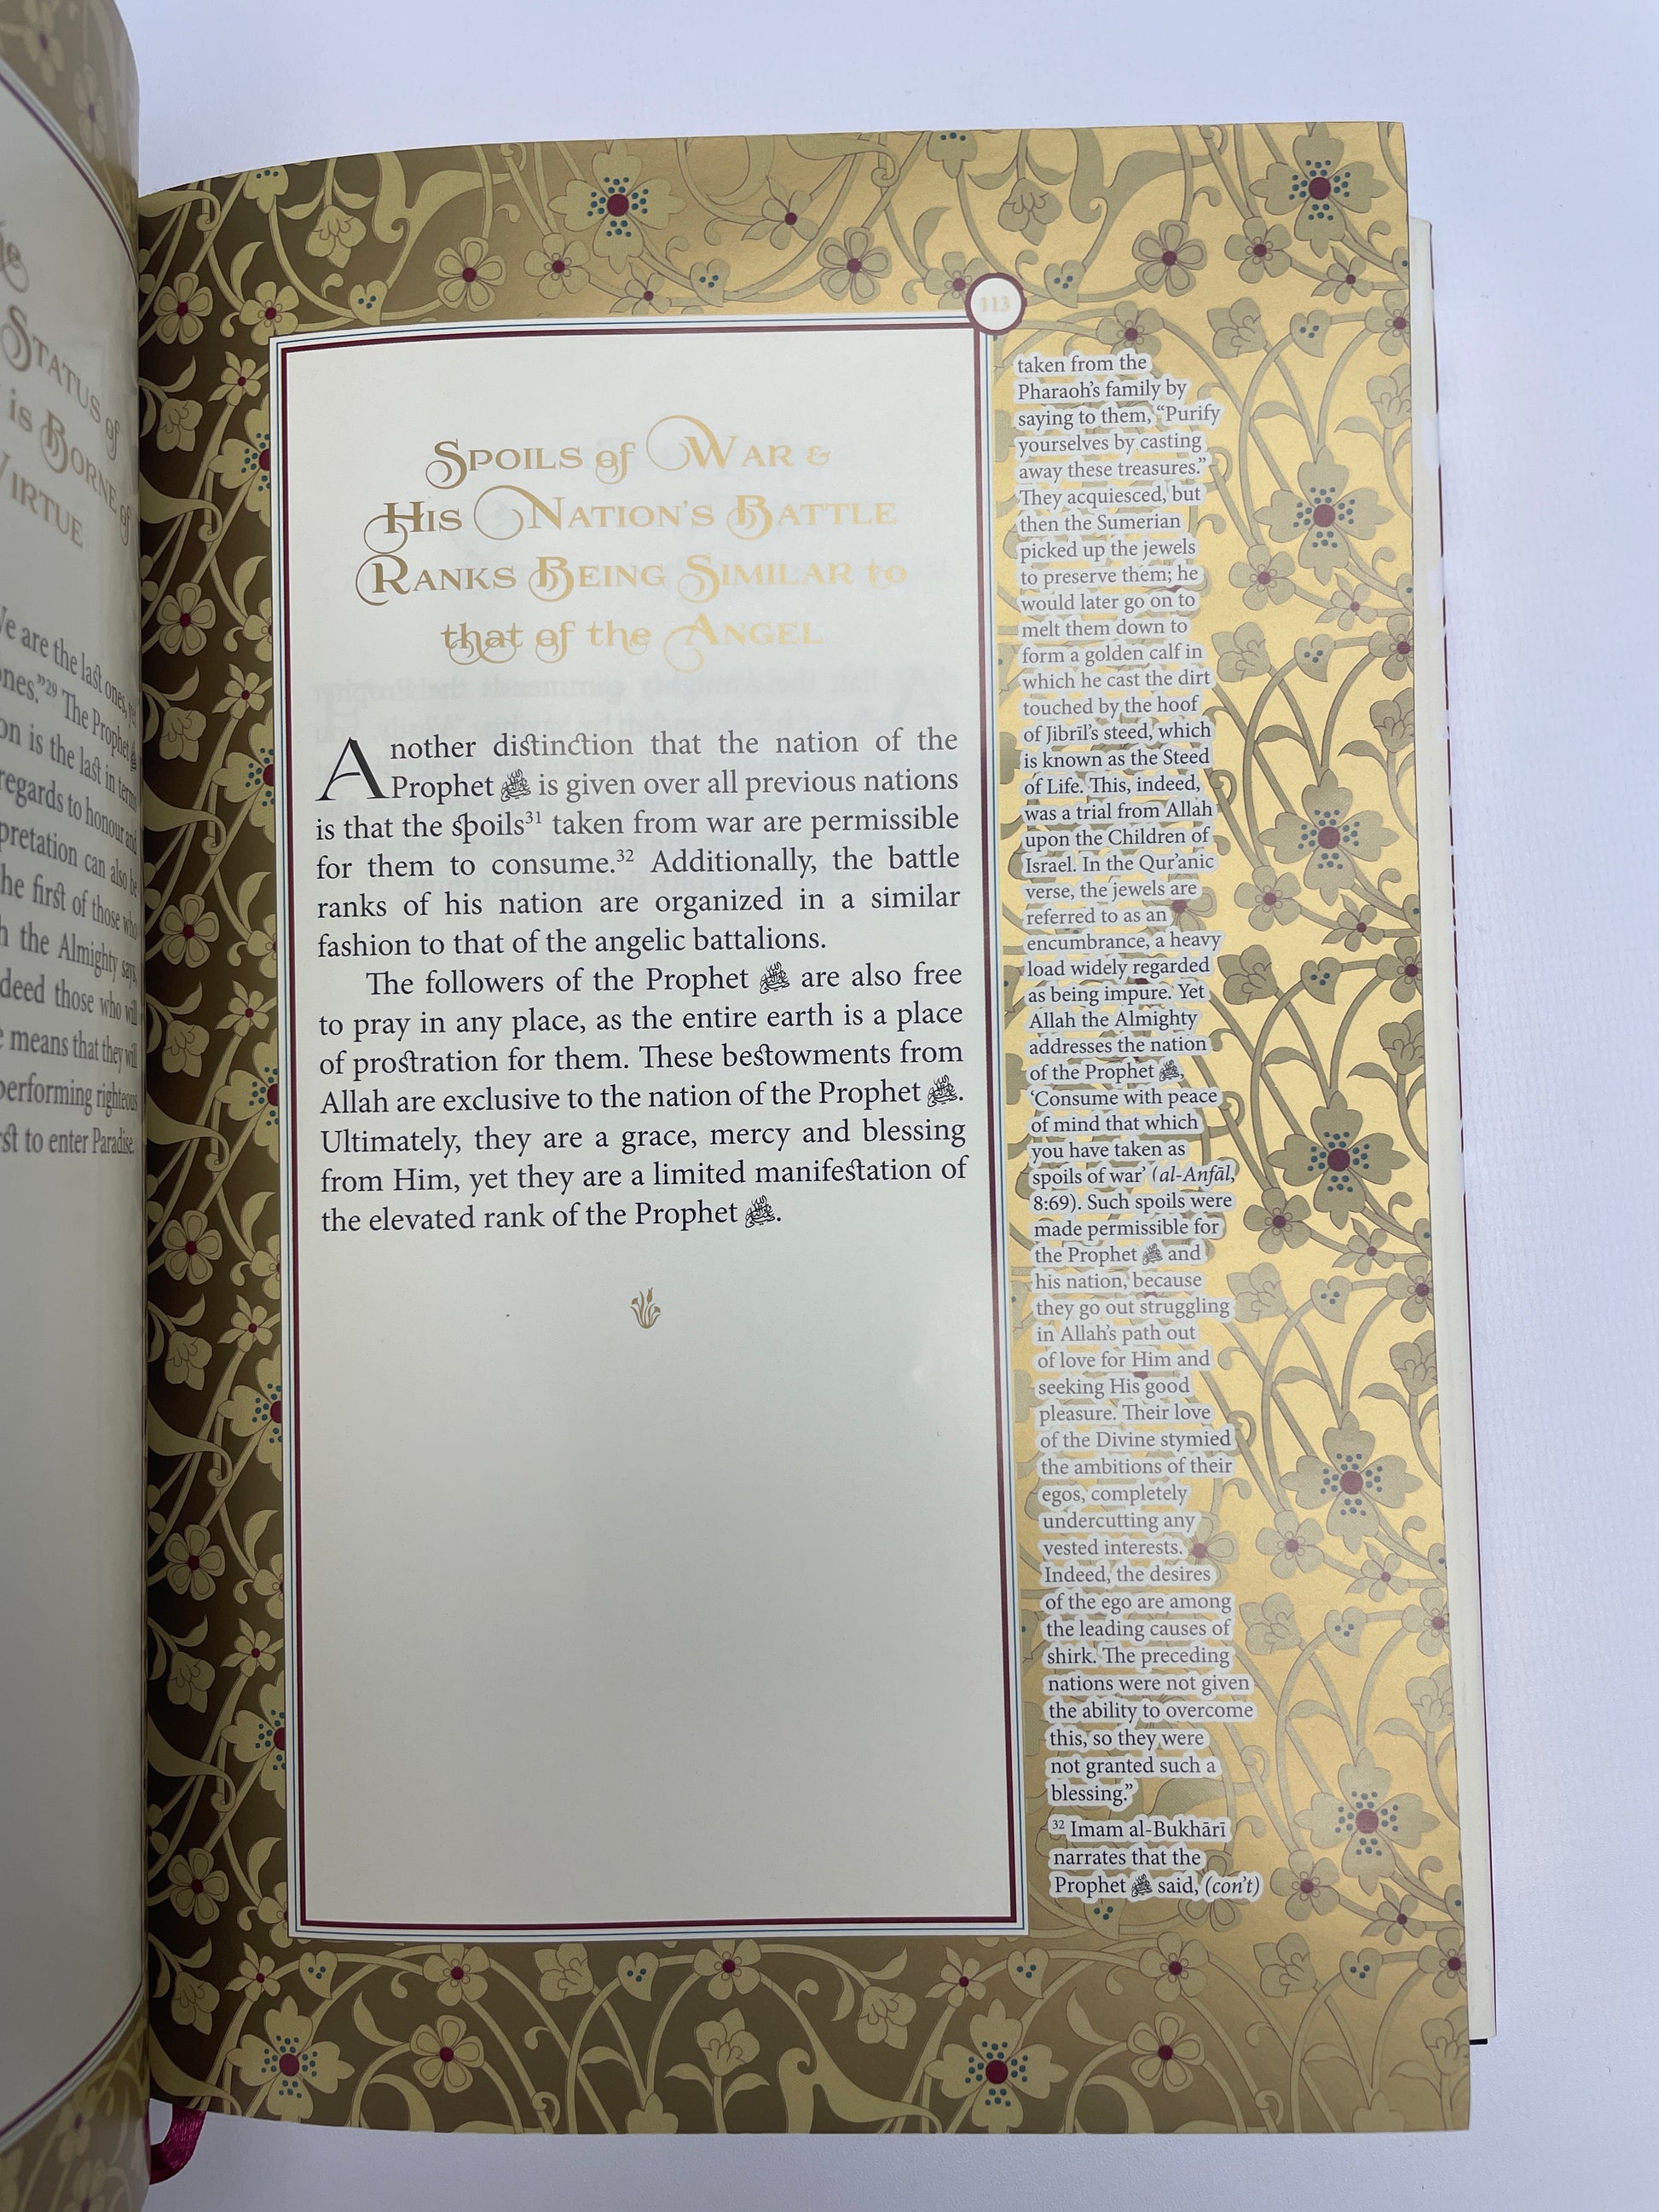 he
Status of
is Borne of
Virtue
We are the last ones, yet
ones.”²⁹ The Prophet ﷺ
on is the last in terms
regards to honour and
pretation can also be
he first of those who
h the Almighty says,
deed those who will
e means that they will
performing righteous
rst to enter Paradise.
113
Spoils of War &
His Nation's Battle
Ranks Being Similar to
that of the Angel
Another distinction that the nation of the
Prophet ﷺ is given over all previous nations
is that the spoils³¹ taken from war are permissible
for them to consume.³² Additionally, the battle
ranks of his nation are organized in a similar
fashion to that of the angelic battalions.
The followers of the Prophet ﷺ are also free
to pray in any place, as the entire earth is a place
of prostration for them. These bestowments from
Allah are exclusive to the nation of the Prophet ﷺ.
Ultimately, they are a grace, mercy and blessing
from Him, yet they are a limited manifestation of
the elevated rank of the Prophet ﷺ.
taken from the
Pharaoh's family by
saying to them, “Purify
yourselves by casting
away these treasures.”
They acquiesced, but
then the Sumerian
picked up the jewels
to preserve them; he
would later go on to
melt them down to
form a golden calf in
which he cast the dirt
touched by the hoof
of Jibrīl's steed, which
is known as the Steed
of Life. This, indeed,
was a trial from Allah
upon the Children of
Israel. In the Qur'anic
verse, the jewels are
referred to as an
encumbrance, a heavy
load widely regarded
as being impure. Yet
Allah the Almighty
addresses the nation
of the Prophet ﷺ,
‘Consume with peace
of mind that which
you have taken as
spoils of war’ (al-Anfāl,
8:69). Such spoils were
made permissible for
the Prophet ﷺ and
his nation, because
they go out struggling
in Allah's path out
of love for Him and
seeking His good
pleasure. Their love
of the Divine stymied
the ambitions of their
egos, completely
undercutting any
vested interests.
Indeed, the desires
of the ego are among
the leading causes of
shirk. The preceding
nations were not given
the ability to overcome
this, so they were
not granted such a
blessing.”
³² Imam al-Bukhārī
narrates that the
Prophet ﷺ said, (con't)